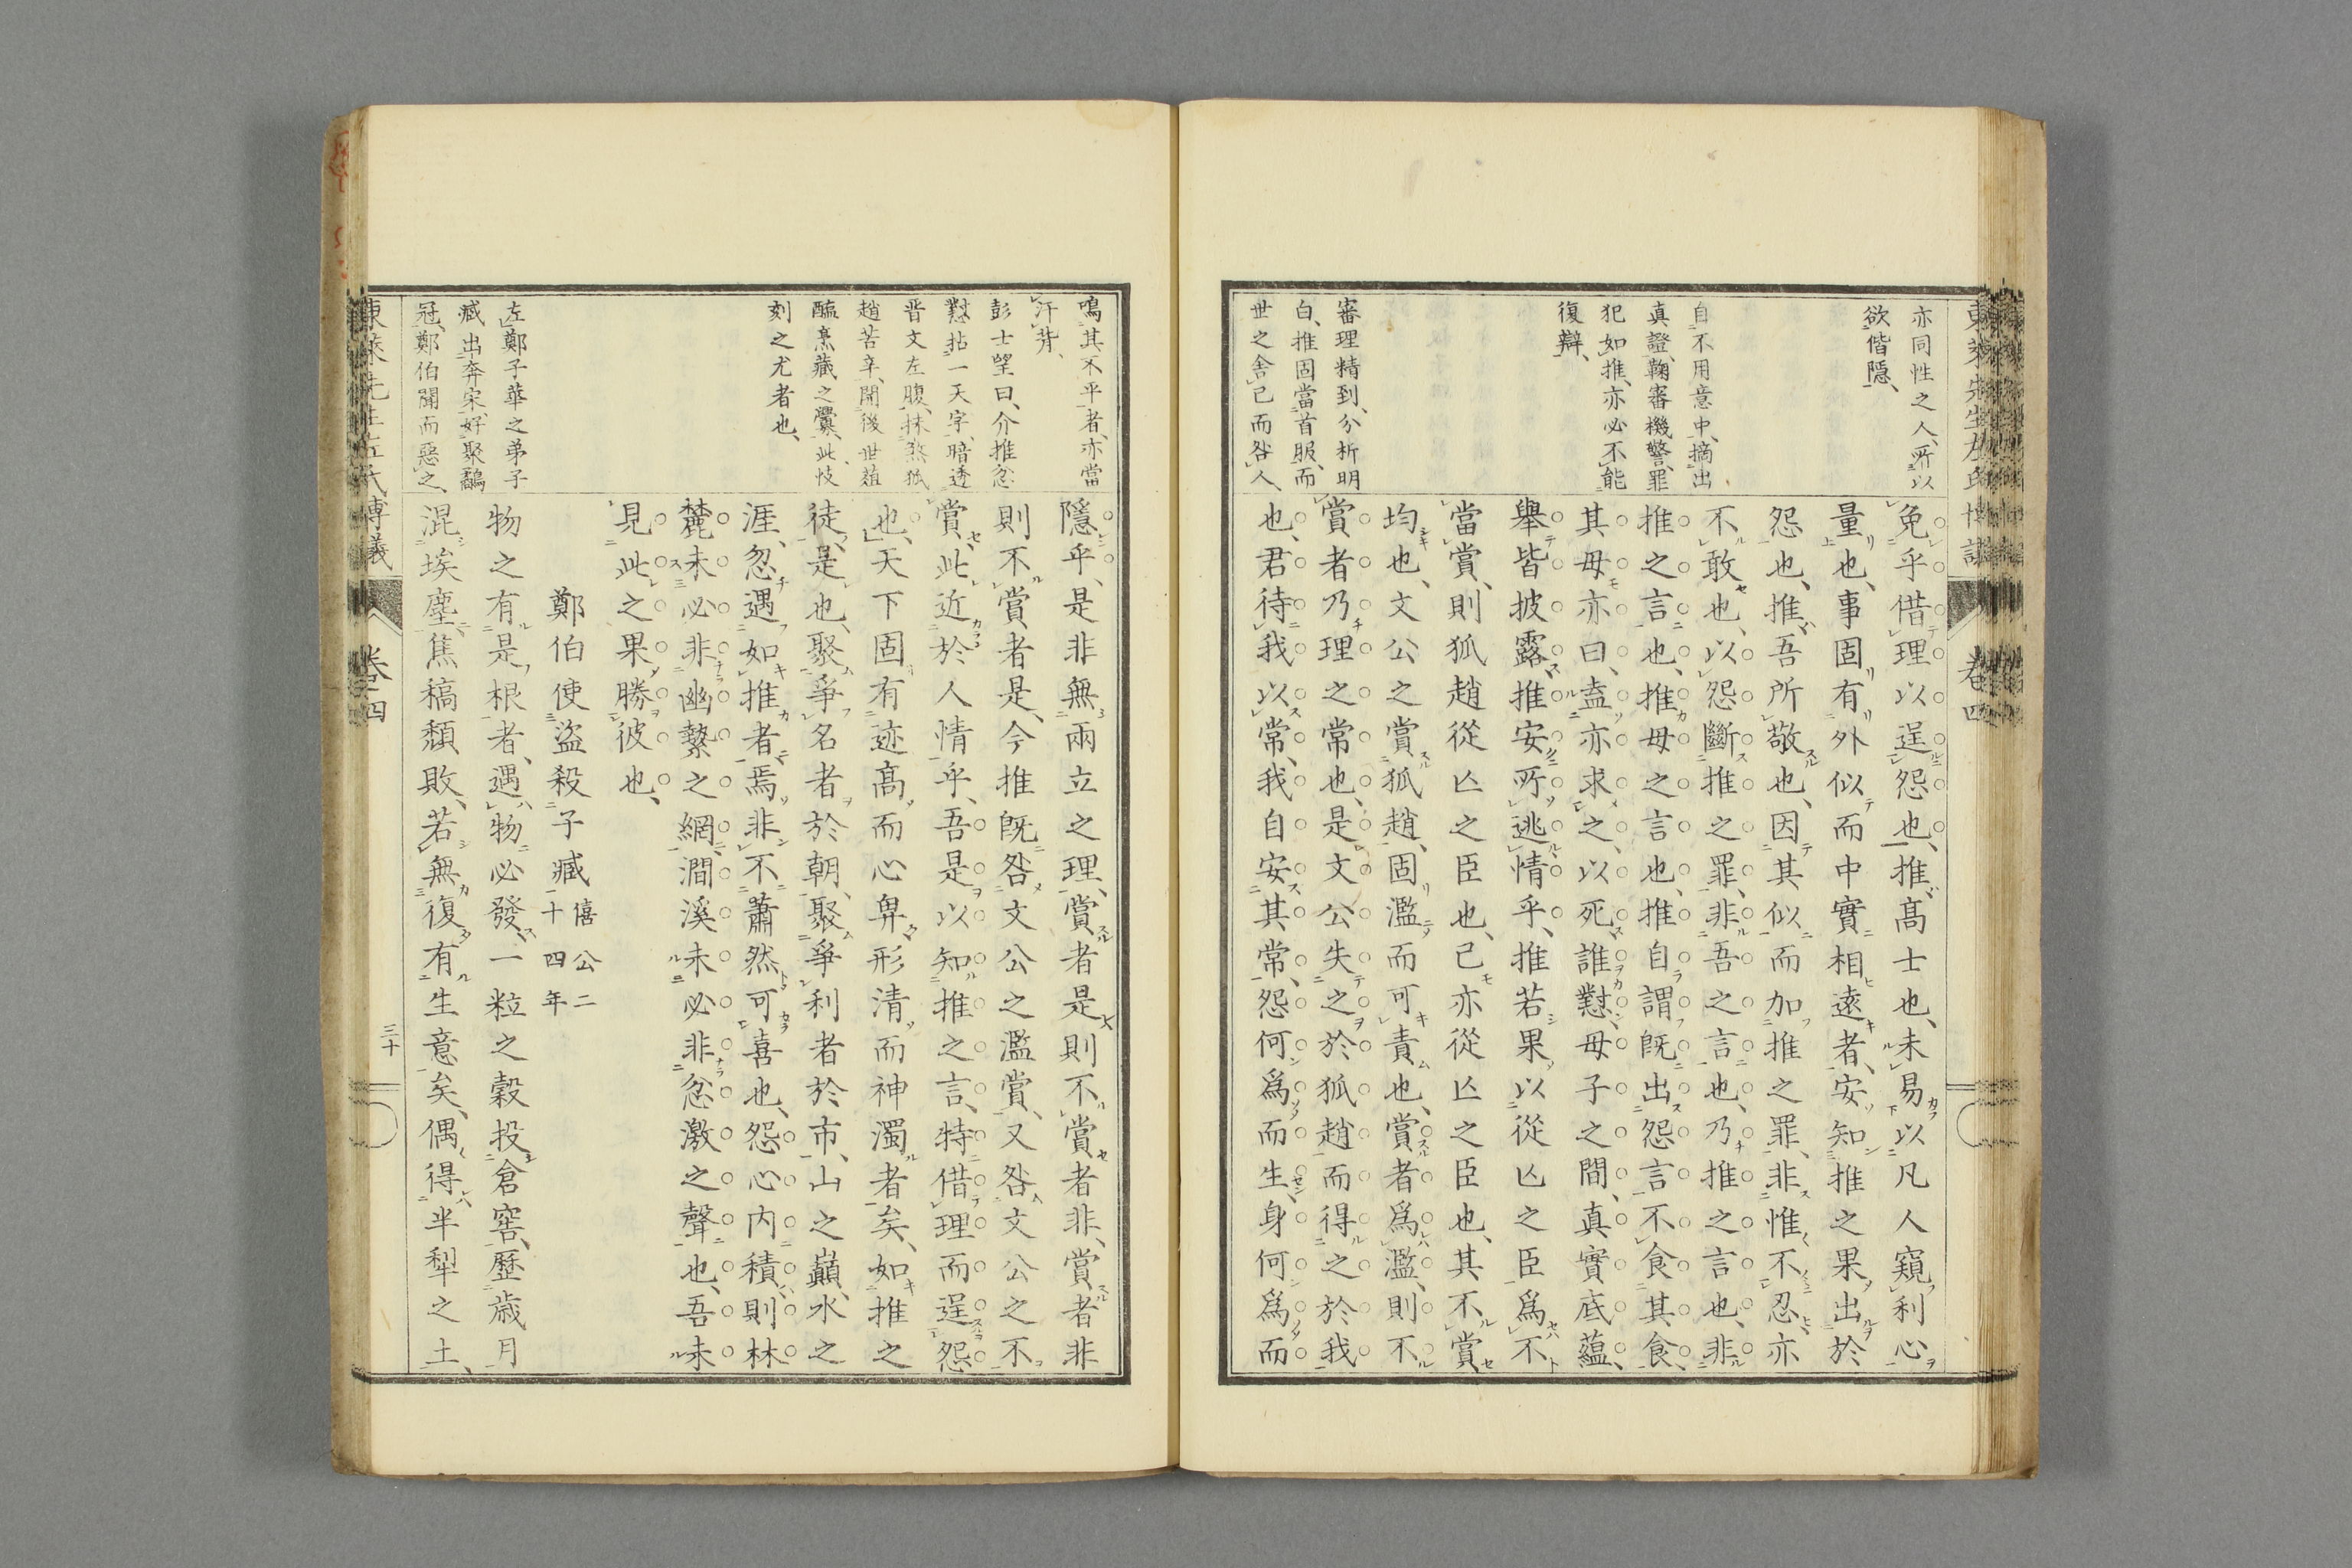 亦同性之人、所以
欲偕隱、
自不用意中、摘出
真證、鞠審機警、罪
犯如推、亦必不能
復辯、
審理精到、分析明
白、推固當首服、而
世之舍己而咎人、
免乎借理以逞怨也、推高士也、未易以凡人窺利心
量也、事固有外似而中實相遠者、安知推之果出於
怨也、推吾所敬也、因其似而加推之罪、非惟不忍、亦
不敢也、以怨斷推之罪、非吾之言也、乃推之言也、非
推之言也、推母之言也、推自謂既出怨言、不食其食、
其母亦曰、盍亦求之、以死誰懟、母子之間、真實底蘊、
舉皆披露、推安所逃情乎、推若果以從亾之臣爲不
當賞、則狐趙從亾之臣也、己亦從亾之臣也、其不賞
均也、文公之賞狐趙、固濫而可責也、賞者爲濫、則不
賞者乃理之常也、是文公失之於狐趙而得之於我
也、君待我以常、我自安其常、怨何爲而生、身何爲而
東萊先生左氏博議
卷四
鳴其不平者、亦當
汗背、
彭士望曰、介推忿
懟拈一天字、暗透
晋文左腹、抹煞狐
趙苦辛、開後世菹
醢烹藏之釁、此忮
刻之尤者也、
左鄭子華之弟子
臧出奔宋、好聚鷸
冠、鄭伯聞而惡之、
隱乎、是非無兩立之理、賞者是則不賞者非、賞者非
則不賞者是、今推既咎文公之濫賞、又咎文公之不
賞、此近於人情乎、吾是以知推之言、特借理而逞怨
也、天下固有迹高而心卑、形清而神濁者矣、如推之
徒、是也、聚爭名者於朝、聚爭利者於市、山之巔、水之
涯、忽遇如推者焉、非不蕭然可喜也、怨心内積、則林
麓未必非幽縶之網、澗溪未必非忿激之聲也、吾未
見此之果勝彼也、
鄭伯使盗殺子臧 僖公二十四年
物之有是根者、遇物必發、一粒之穀投倉窖、歷歳月
混埃塵、焦稿頽敗、若無復有生意矣、偶得半犁之土、
東萊先生左氏博議
卷四
三十